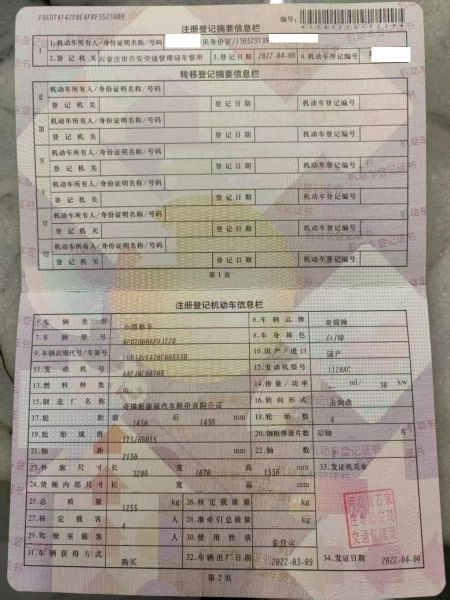 注册登记摘要信息栏
编号:
1.机动车所有人/身份证明名称/号码 民身份证/
2.登记机关 石家庄市公安交通管理局车管所 3.登记日期 2022-04-06 4.机动车登记编号
转移登记摘要信息栏
II 机动车所有人/身份证明名称/号码
登记机关 登记日期 机动车登记编号
III 机动车所有人/身份证明名称/号码
登记机关 登记日期 机动车登记编号
IV 机动车所有人/身份证明名称/号码
登记机关 登记日期 机动车登记编号
V 机动车所有人/身份证明名称/号码
登记机关 登记日期 机动车登记编号
VI 机动车所有人/身份证明名称/号码
登记机关 登记日期 机动车登记编号
VII 机动车所有人/身份证明名称/号码
登记机关 登记日期 机动车登记编号
第1页
注册登记机动车信息栏
5.车辆类型 小型轿车 6.车辆品牌 奇瑞牌
7.车辆型号 8.车身颜色 白/绿
9.车辆识别代号/车架号 10.国产/进口 国产
11.发动机号 12.发动机型号
13.燃料种类 电 14.排量/功率 ml/ 30 kw
15.制造厂名称 奇瑞新能源汽车股份有限公司 16.转向形式 方向盘
17.轮距 前 1450 后 1430 mm 18.轮胎数 4
19.轮胎规格 175/60R15 20.钢板弹簧片数 后轴 片
21.轴距 2150 mm 22.轴数 2
23.外廓尺寸 长 3200 宽 1670 高 1550 mm 33.发证机关章
24.货厢内部尺寸 长 宽 高 mm
25.总质量 1255 kg 26.核定载质量 kg
27.核定载客 4 人 28.准牵引总质量 kg
29.驾驶室载客 人 30.使用性质 非营运
31.车辆获得方式 购买 32.车辆出厂日期 2022-03-09 34.发证日期 2022-04-06
第2页